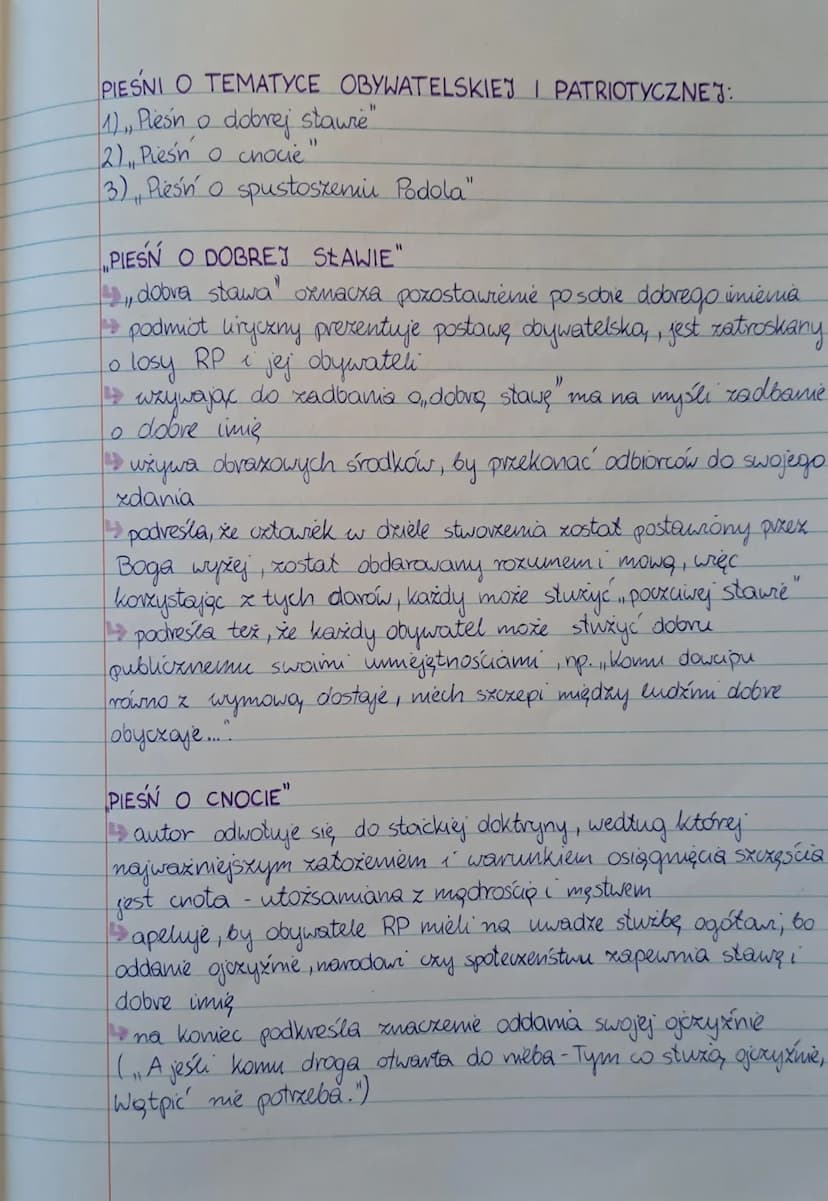 PIEŚNI O TEMATYCE OBYWATELSKIEJ I PATRIOTYCZNEJ:
1) „Pieśn o dobrej sławie"
2) „Pieśń o cnocie"
3) „Pieśń o spustoszeniu Podola"
„PIEŚŃ O DOBREJ SŁAWIE"
↳ „dobra sława" oznacza pozostawienie po sobie dobrego imienia
↳ podmiot liryczny prezentuje postawę obywatelską, jest zatroskany
o losy RP i jej obywateli
↳ wzywając do zadbania o „dobrą sławę" ma na myśli zadbanie
o dobre imię
↳ używa obrazowych środków, by przekonać odbiorców do swojego
zdania
↳ podreśla, że człowiek w dziele stworzenia został postawiony przez
Boga wyżej, został obdarowany rozumem i mową, więc
korzystając z tych darów, każdy może służyć „poczciwej sławie"
↳ podreśla też, że każdy obywatel może służyć dobru
publicznemu swoimi umiejętnościami, np. „Komu dowcipu
równo z wymową dostaje, niech szczepi między ludźmi dobre
obyczaje...".
„PIEŚŃ O CNOCIE"
↳ autor odwołuje się do stoickiej doktryny, według której
najważniejszym założeniem i warunkiem osiągnięcia szczęścia
jest cnota - utożsamiana z mądrością i męstwem
↳ apeluje, by obywatele RP mieli na uwadze służbę ogółowi, bo
oddanie ojczyźnie, narodowi czy społeczeństwu zapewnia sławę i
dobre imię
↳ na koniec podkreśla znaczenie oddania swojej ojczyźnie
(„A jeśli komu droga otwarta do nieba - Tym co służą ojczyźnie,
Wątpić nie potrzeba.")